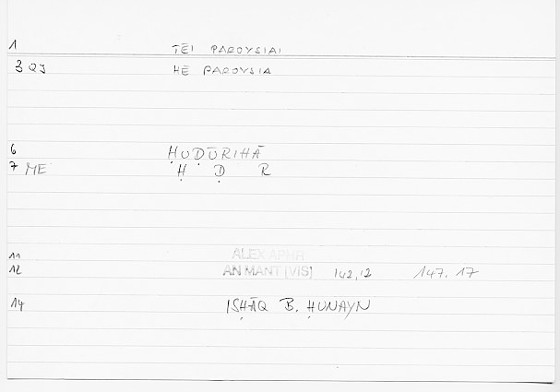 1 TĒI PAROYSIAI
3 QJ HĒ PAROYSIA
6 ḤUḌŪRIHĀ
7 ME Ḥ Ḍ R
11 ALEX APHR
12 AN MANT (VIS) 142,12 147.17
14 ISḤĀQ B. ḤUNAYN